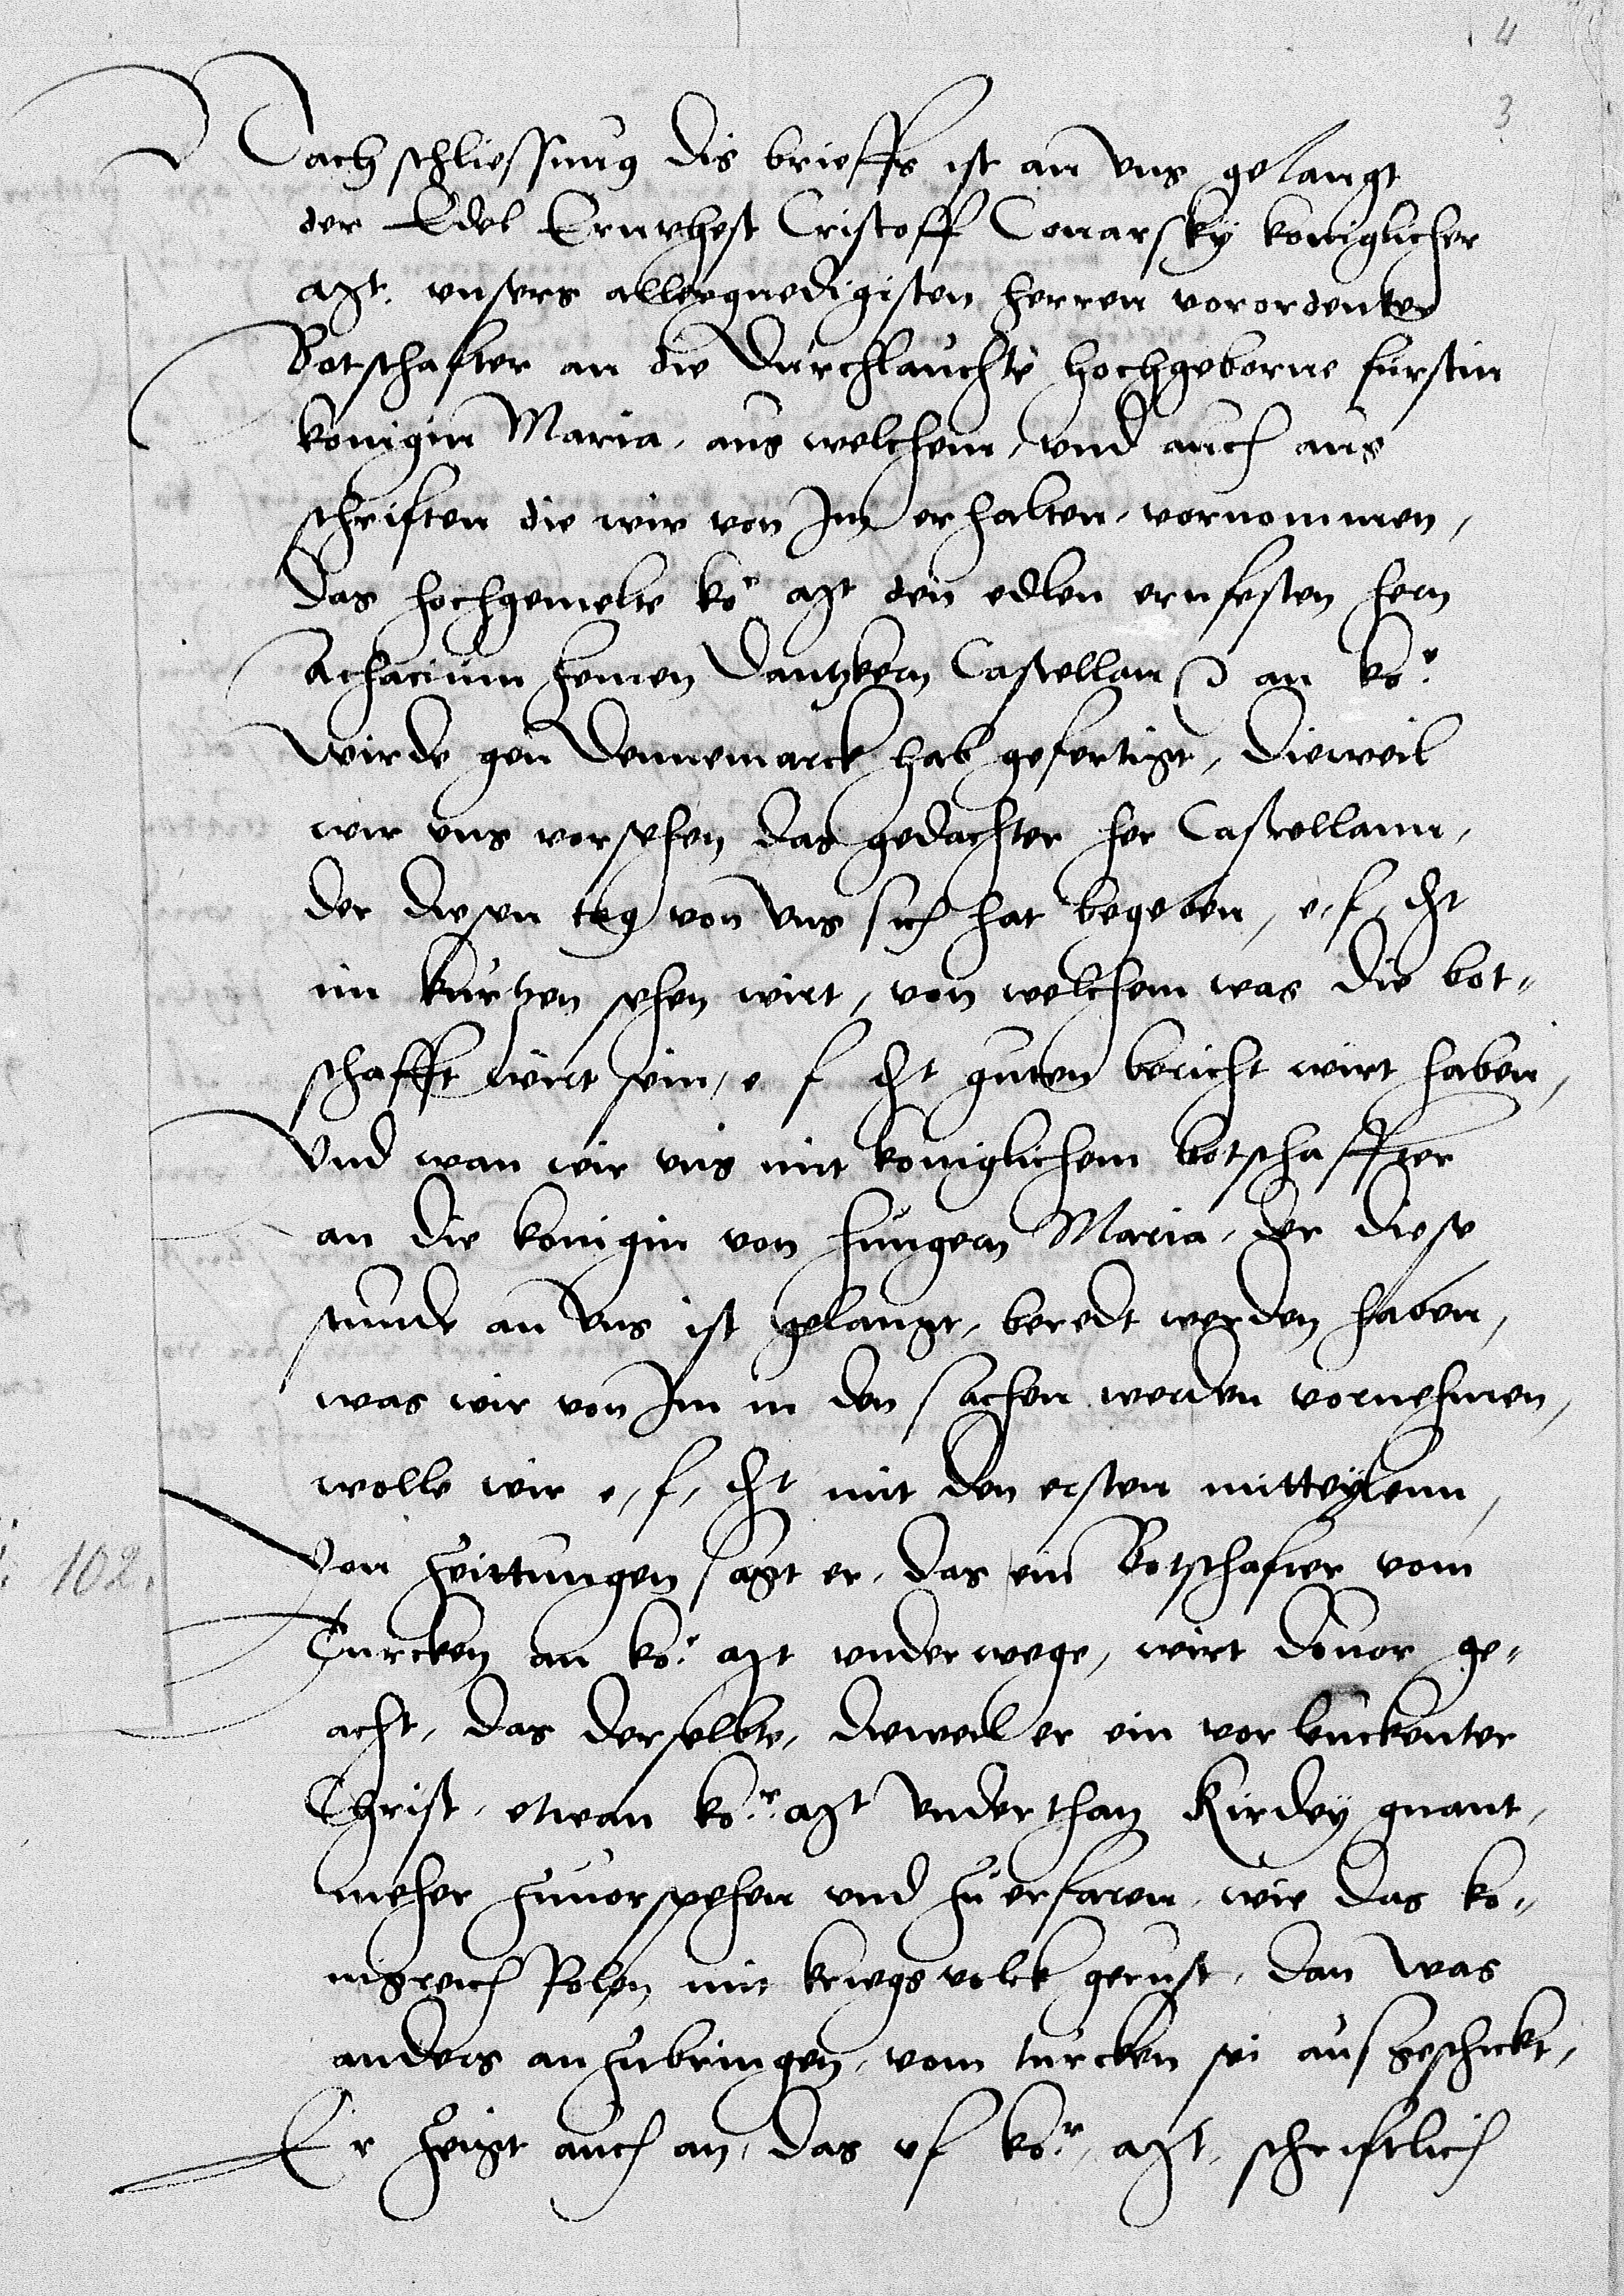 4
3
Nach schliessung dis brieffs ist an vns gelangt
der Edel Ernvhest Cristoff Conarsky koniglicher
Mt. vnsers allergnedigisten herren vorordenter
Botschafter an die Durchlauchte hochgeborne furstin
konigin Maria, aus welchem, vnd auch aus
schriften die wir von Im erhalten, vornommen,
das hochgemelte ko.r Mt den edlen ernfesten hern
Achacium Zemen Dantzkern Castellan an ko.e
wirde gen Dennemarck hab gefertigt, dieweil
wir vns vorsehen das gedachter her Castellann,
der diesen tag von vns sich hat begeben, e, f, dht
im kurtzen sehen wirt, von welchem was die bot-
schafft wirt sein, e f dht guten bericht wirt haben,
Vnd wan wir vns mit koniglichem botschaffter
an die konigin von Hungern Maria, der diese
stunde an vns ist gelangt, beredt werden haben,
was wir von Im in den sachen werden vornehmen,
wolle wir e, f, dht mit den ersten mitteylenn,
Von Zeittungen sagt er, das ein Botschafter vom
Turcken an ko.e Mt vnderwege, wirt douor ge-
acht, das derselbte, dieweil er ein vorleuckenter
Christ, etwan ko.r Mt vnderthan Kirdey gnant,
meher zuuorspehen vnd zu erfaren, wie das ko-
nigreich Polen mit kriegsvolck gerust, dan was
anders anzubringen, vom turcken sei ausgeschickt,
Er zeigt auch an, das vf ko.r, Mt, schriftlich
102.